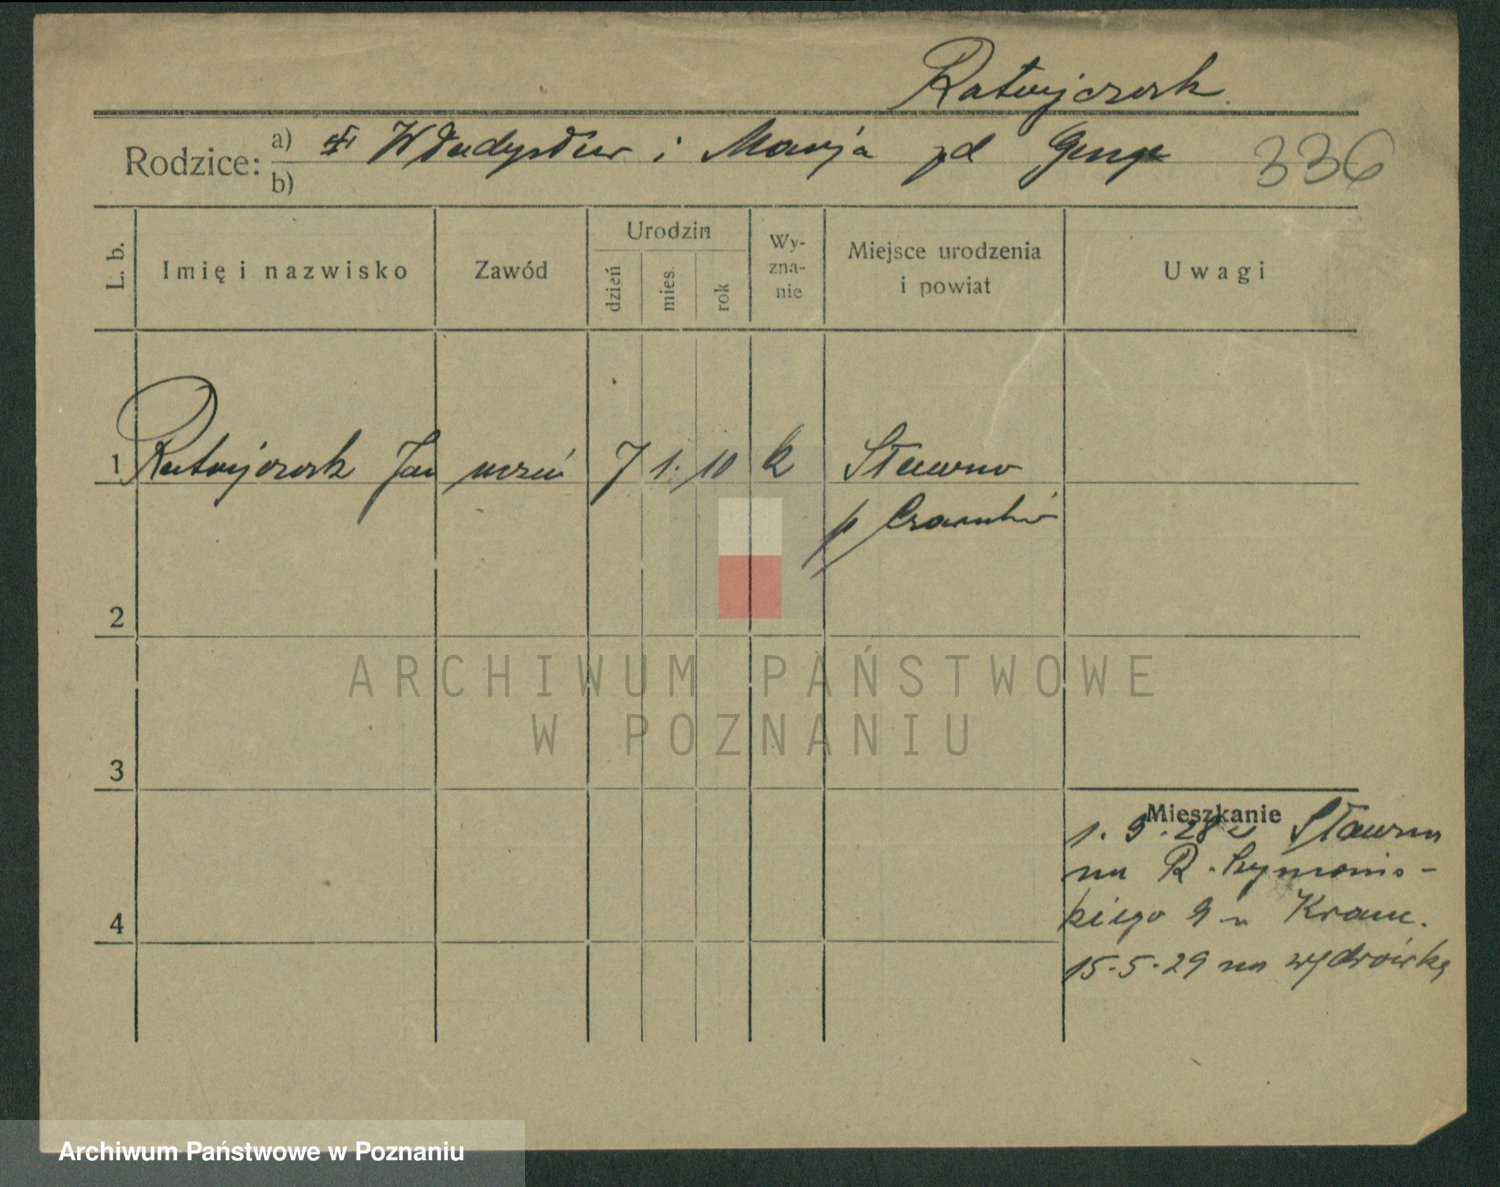 Ratwjczak
Rodzice: a) Władysław i Marja zd
b)
336
L. b. Imię i nazwisko Zawód Urodzin dzień mies. rok Wyznanie Miejsce urodzenia i powiat Uwagi
1 Ratwjczak Jan uczeń 7 1. 10 k Sławno
p Czarnków
2
ARCHIWUM PAŃSTWOWE
W POZNANIU
3
Mieszkanie
1. 9. 28 z Sławna
na R. Szymańs-
kiego 9 u
4
15.5.29 na wędrówkę
Archiwum Państwowe w Poznaniu